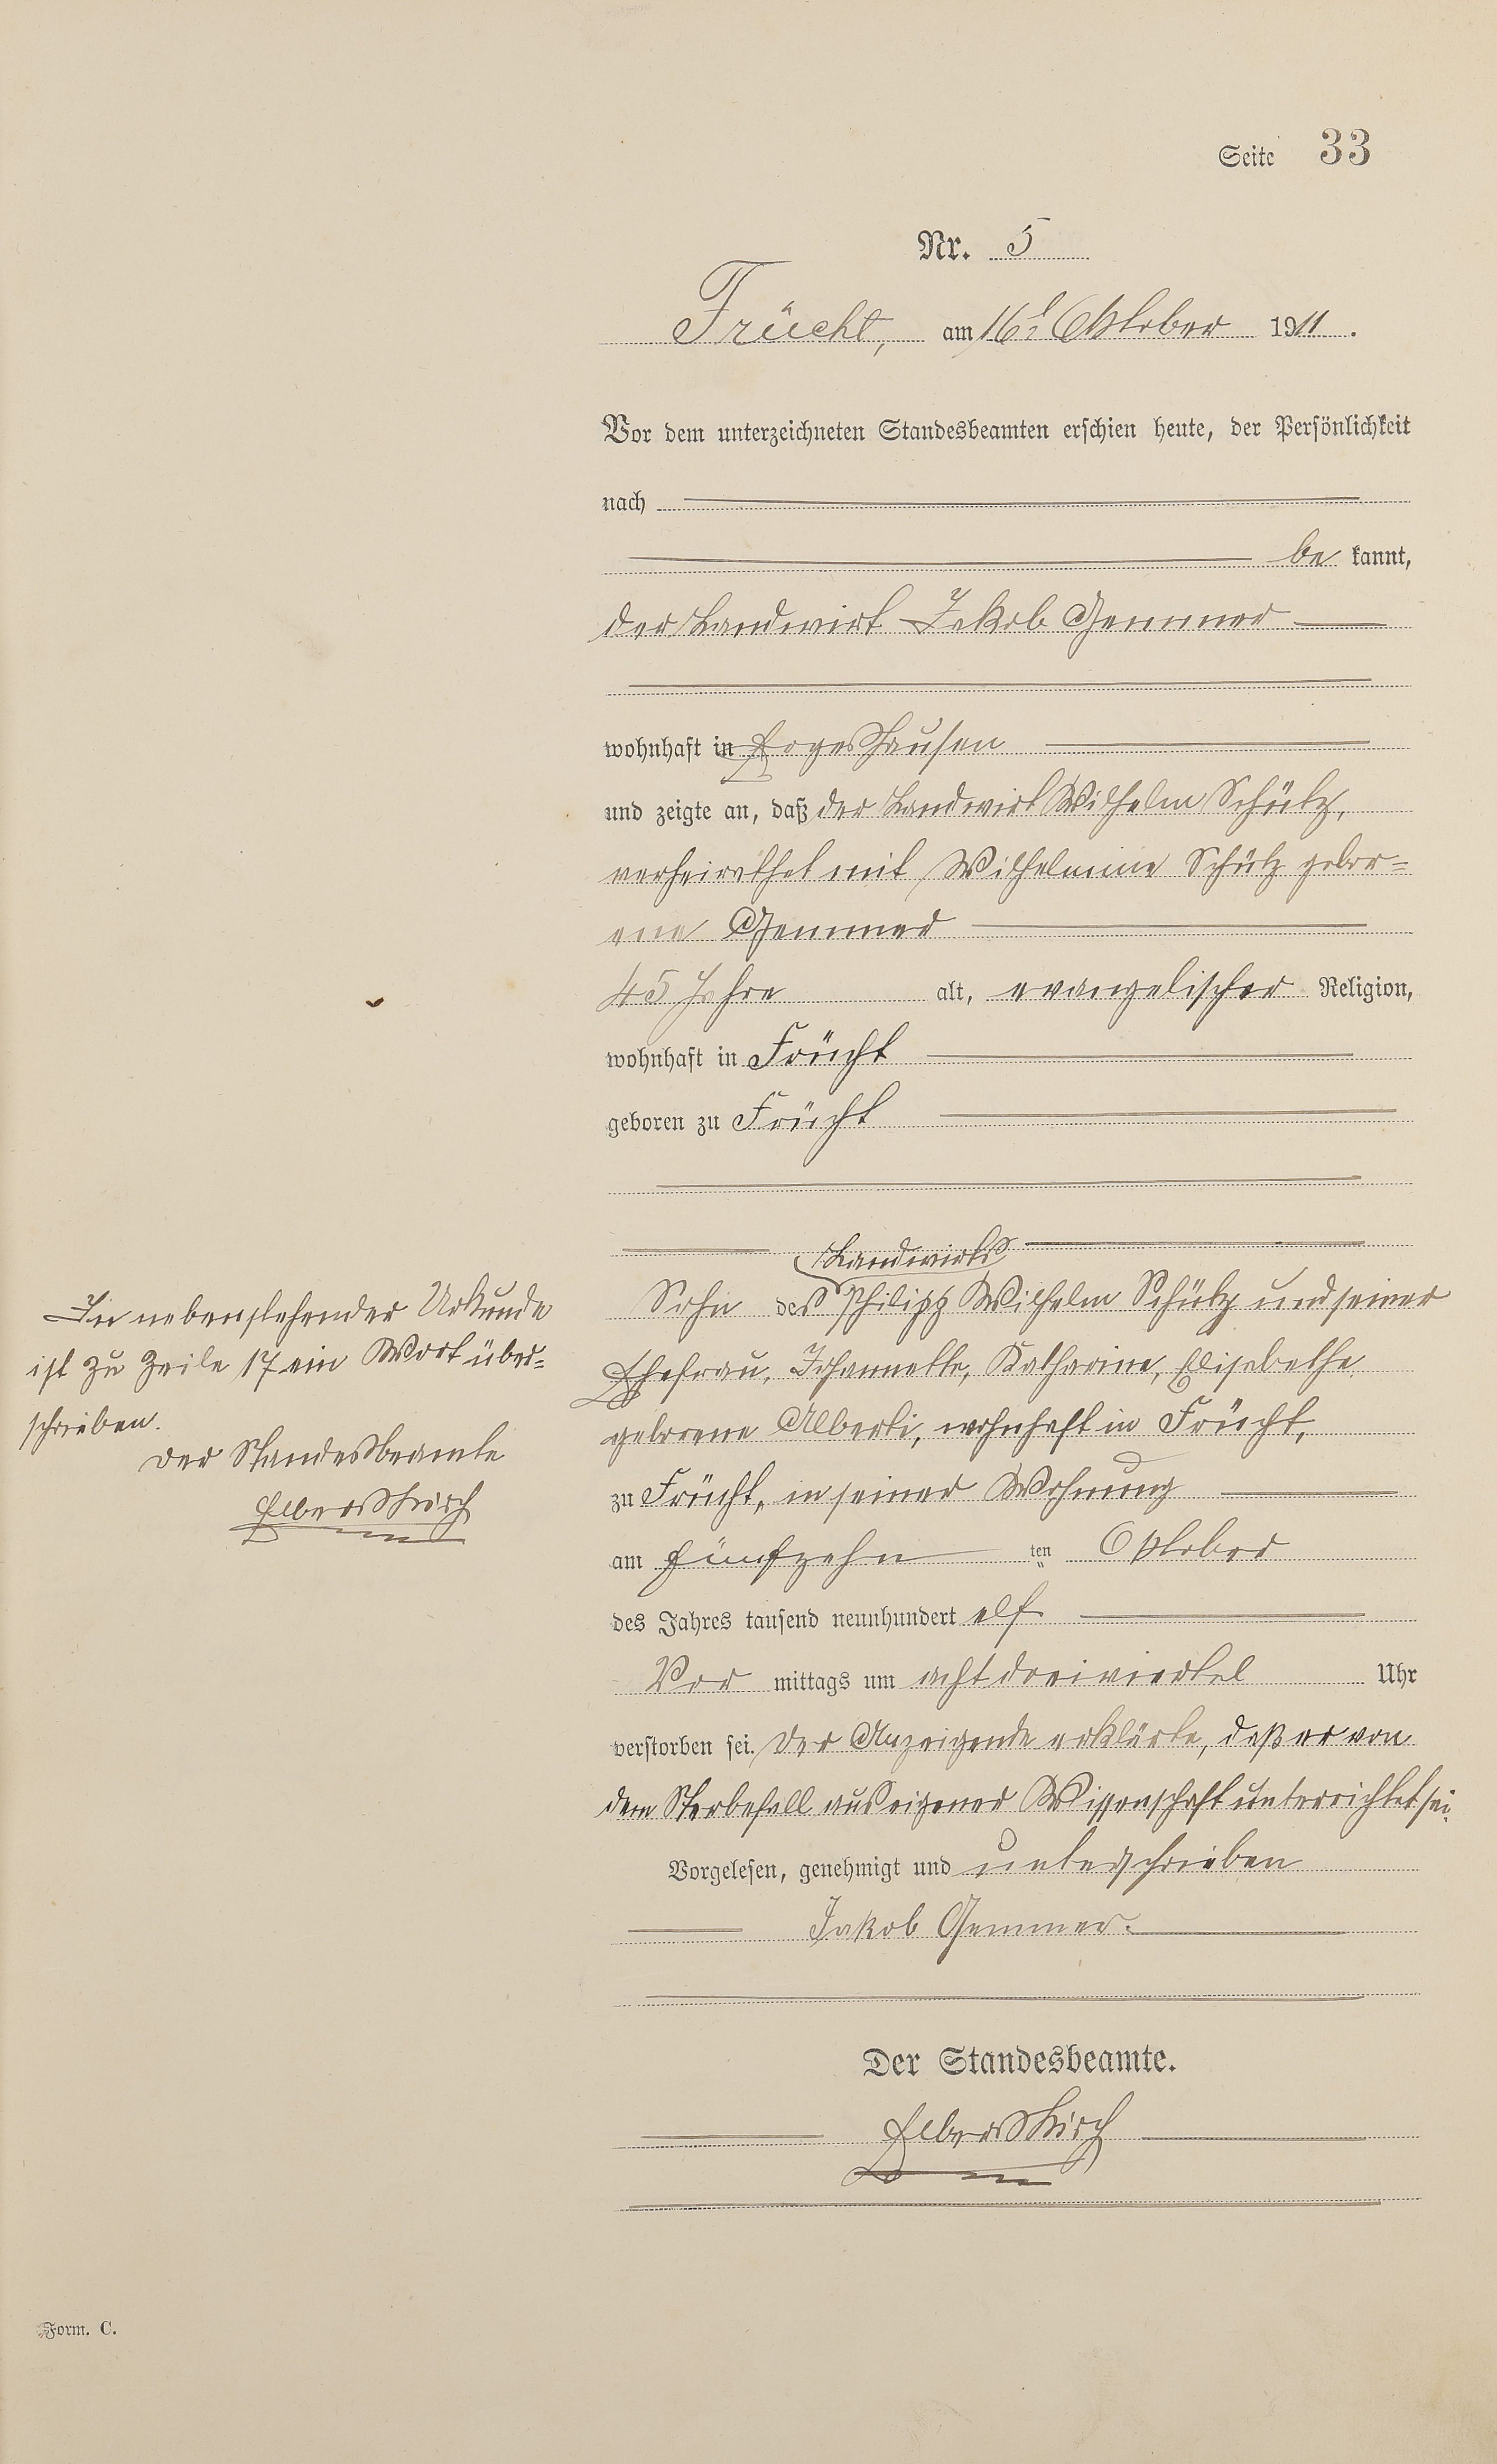 Seite 33
Nr. 5
Frücht, am 16t Oktober 1911.
Vor dem unterzeichneten Standesbeamten erschien heute, der Persönlichkeit
nach
be kannt,
der Landwirt Jakob Gemmer
wohnhaft in Ergeshausen
und zeigte an, daß der Landwirt Wilhelm Schütz,
verheirathet mit Wilhelmine Schütz gebor=
ene Gemmer
45 Jahre alt, evangelischer Religion,
wohnhaft in Frücht
geboren zu Frücht
Landwirts
Sohn des Philipp Wilhelm Schütz und seiner
Ehefrau, Johannette, Katharine, Elisabethe
geborene Alberti, wohnhaft in Frücht,
zu Frücht, in seiner Wohnung
am fünfzehn ten Oktober
des Jahres tausend neunhundert elf
Vor mittags um acht dreiviertel Uhr
verstorben sei. Der Anzeigende erklärte, daß er von
dem Sterbefall aus eigener Wissenschaft unterrichtet sei.
Vorgelesen, genehmigt und unterschrieben
Jakob Gemmer.
Der Standesbeamte.
Elberskirch
In nebenstehender Urkunde
ist zu Zeile 17 ein Wort über=
schrieben.
Der Standesbeamte
Elberskirch
Form. C.